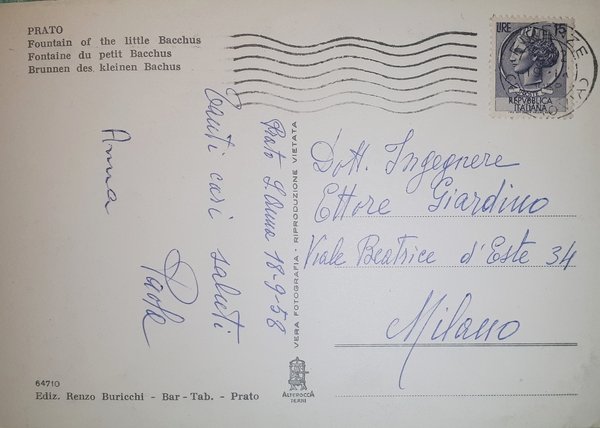 PRATO
Fountain of the little Bacchus
Fontaine du petit Bacchus
Brunnen des kleinen Bachus
Prato S. Anna 18-9-58
Tanti cari saluti
Paola
Anna
VERA FOTOGRAFIA - RIPRODUZIONE VIETATA
LIRE 15
REPVBBLICA
ITALIANA
Dott. Ingegnere
Ettore Giardino
Viale Beatrice d'Este 34
Milano
64710
Ediz. Renzo Buricchi - Bar - Tab. - Prato
ALTEROCCA
TERNI